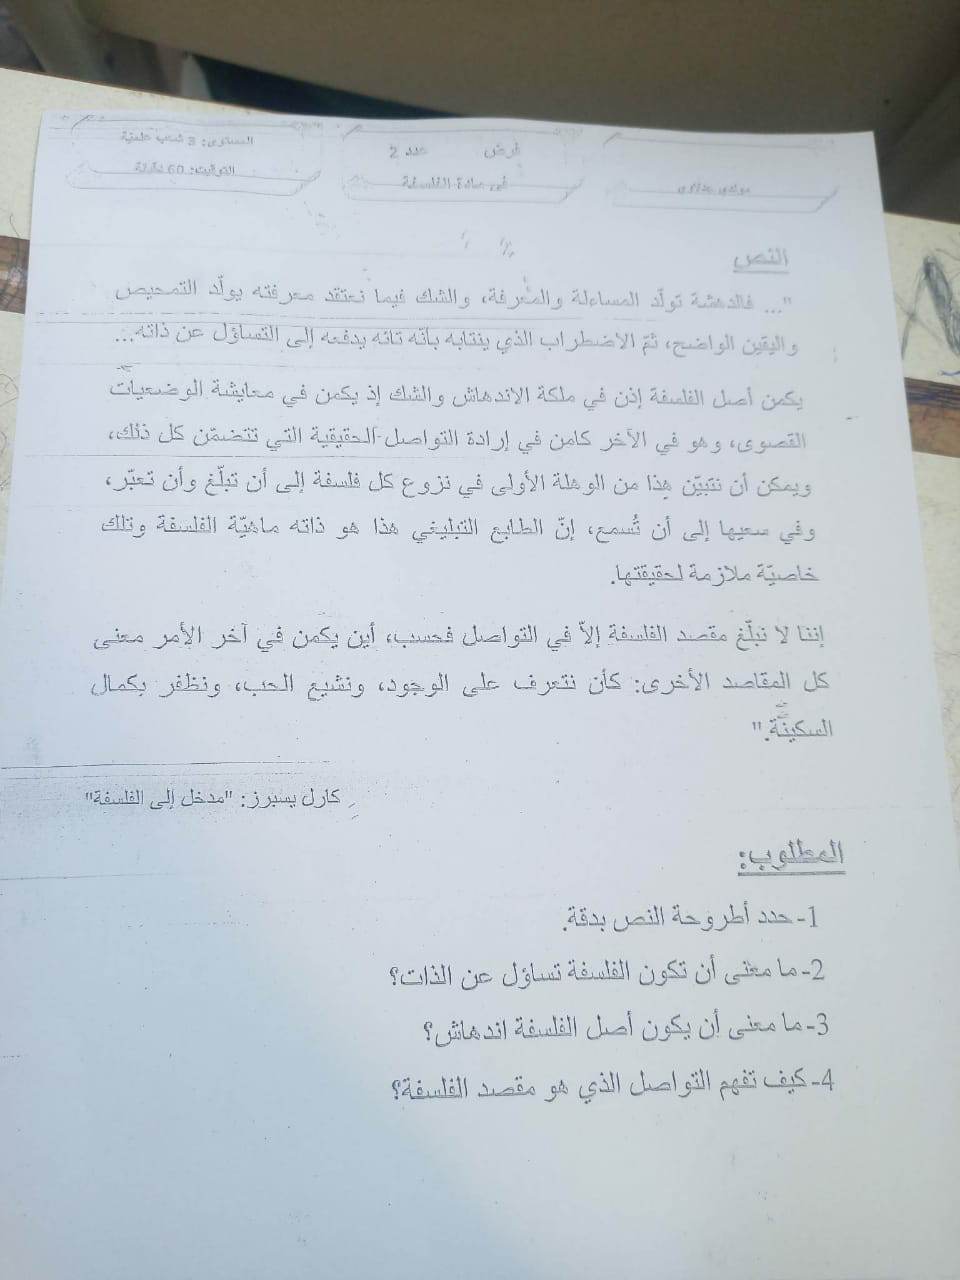 المستوى: 3 شعب علمية
فرض عدد 2
التوقيت: 60 دقيقة
في مادة الفلسفة
النص
"... فالدهشة تولّد المساءلة والمعرفة، والشك فيما نعتقد معرفته يولّد التمحيص
واليقين الواضح، ثمّ الاضطراب الذي ينتابه بأنّه تائه يدفعه إلى التساؤل عن ذاته...
يكمن أصل الفلسفة إذن في ملكة الاندهاش والشك إذ يكمن في معايشة الوضعيات
القصوى، وهو في الآخر كامن في إرادة التواصل الحقيقية التي تتضمّن كل ذلك،
ويمكن أن نتبيّن هذا من الوهلة الأولى في نزوع كل فلسفة إلى أن تبلّغ وأن تعبّر،
وفي سعيها إلى أن تُسمع، إنّ الطابع التبليغي هذا هو ذاته ماهيّة الفلسفة وتلك
خاصيّة ملازمة لحقيقتها.
إننا لا نبلّغ مقصد الفلسفة إلاّ في التواصل فحسب، أين يكمن في آخر الأمر معنى
كل المقاصد الأخرى: كأن نتعرف على الوجود، ونشيع الحب، ونظفر بكمال
السكينة."
كارل يسبرز: "مدخل إلى الفلسفة"
المطلوب:
1- حدد أطروحة النص بدقة.
2- ما معنى أن تكون الفلسفة تساؤل عن الذات؟
3- ما معنى أن يكون أصل الفلسفة اندهاش؟
4- كيف تفهم التواصل الذي هو مقصد الفلسفة؟